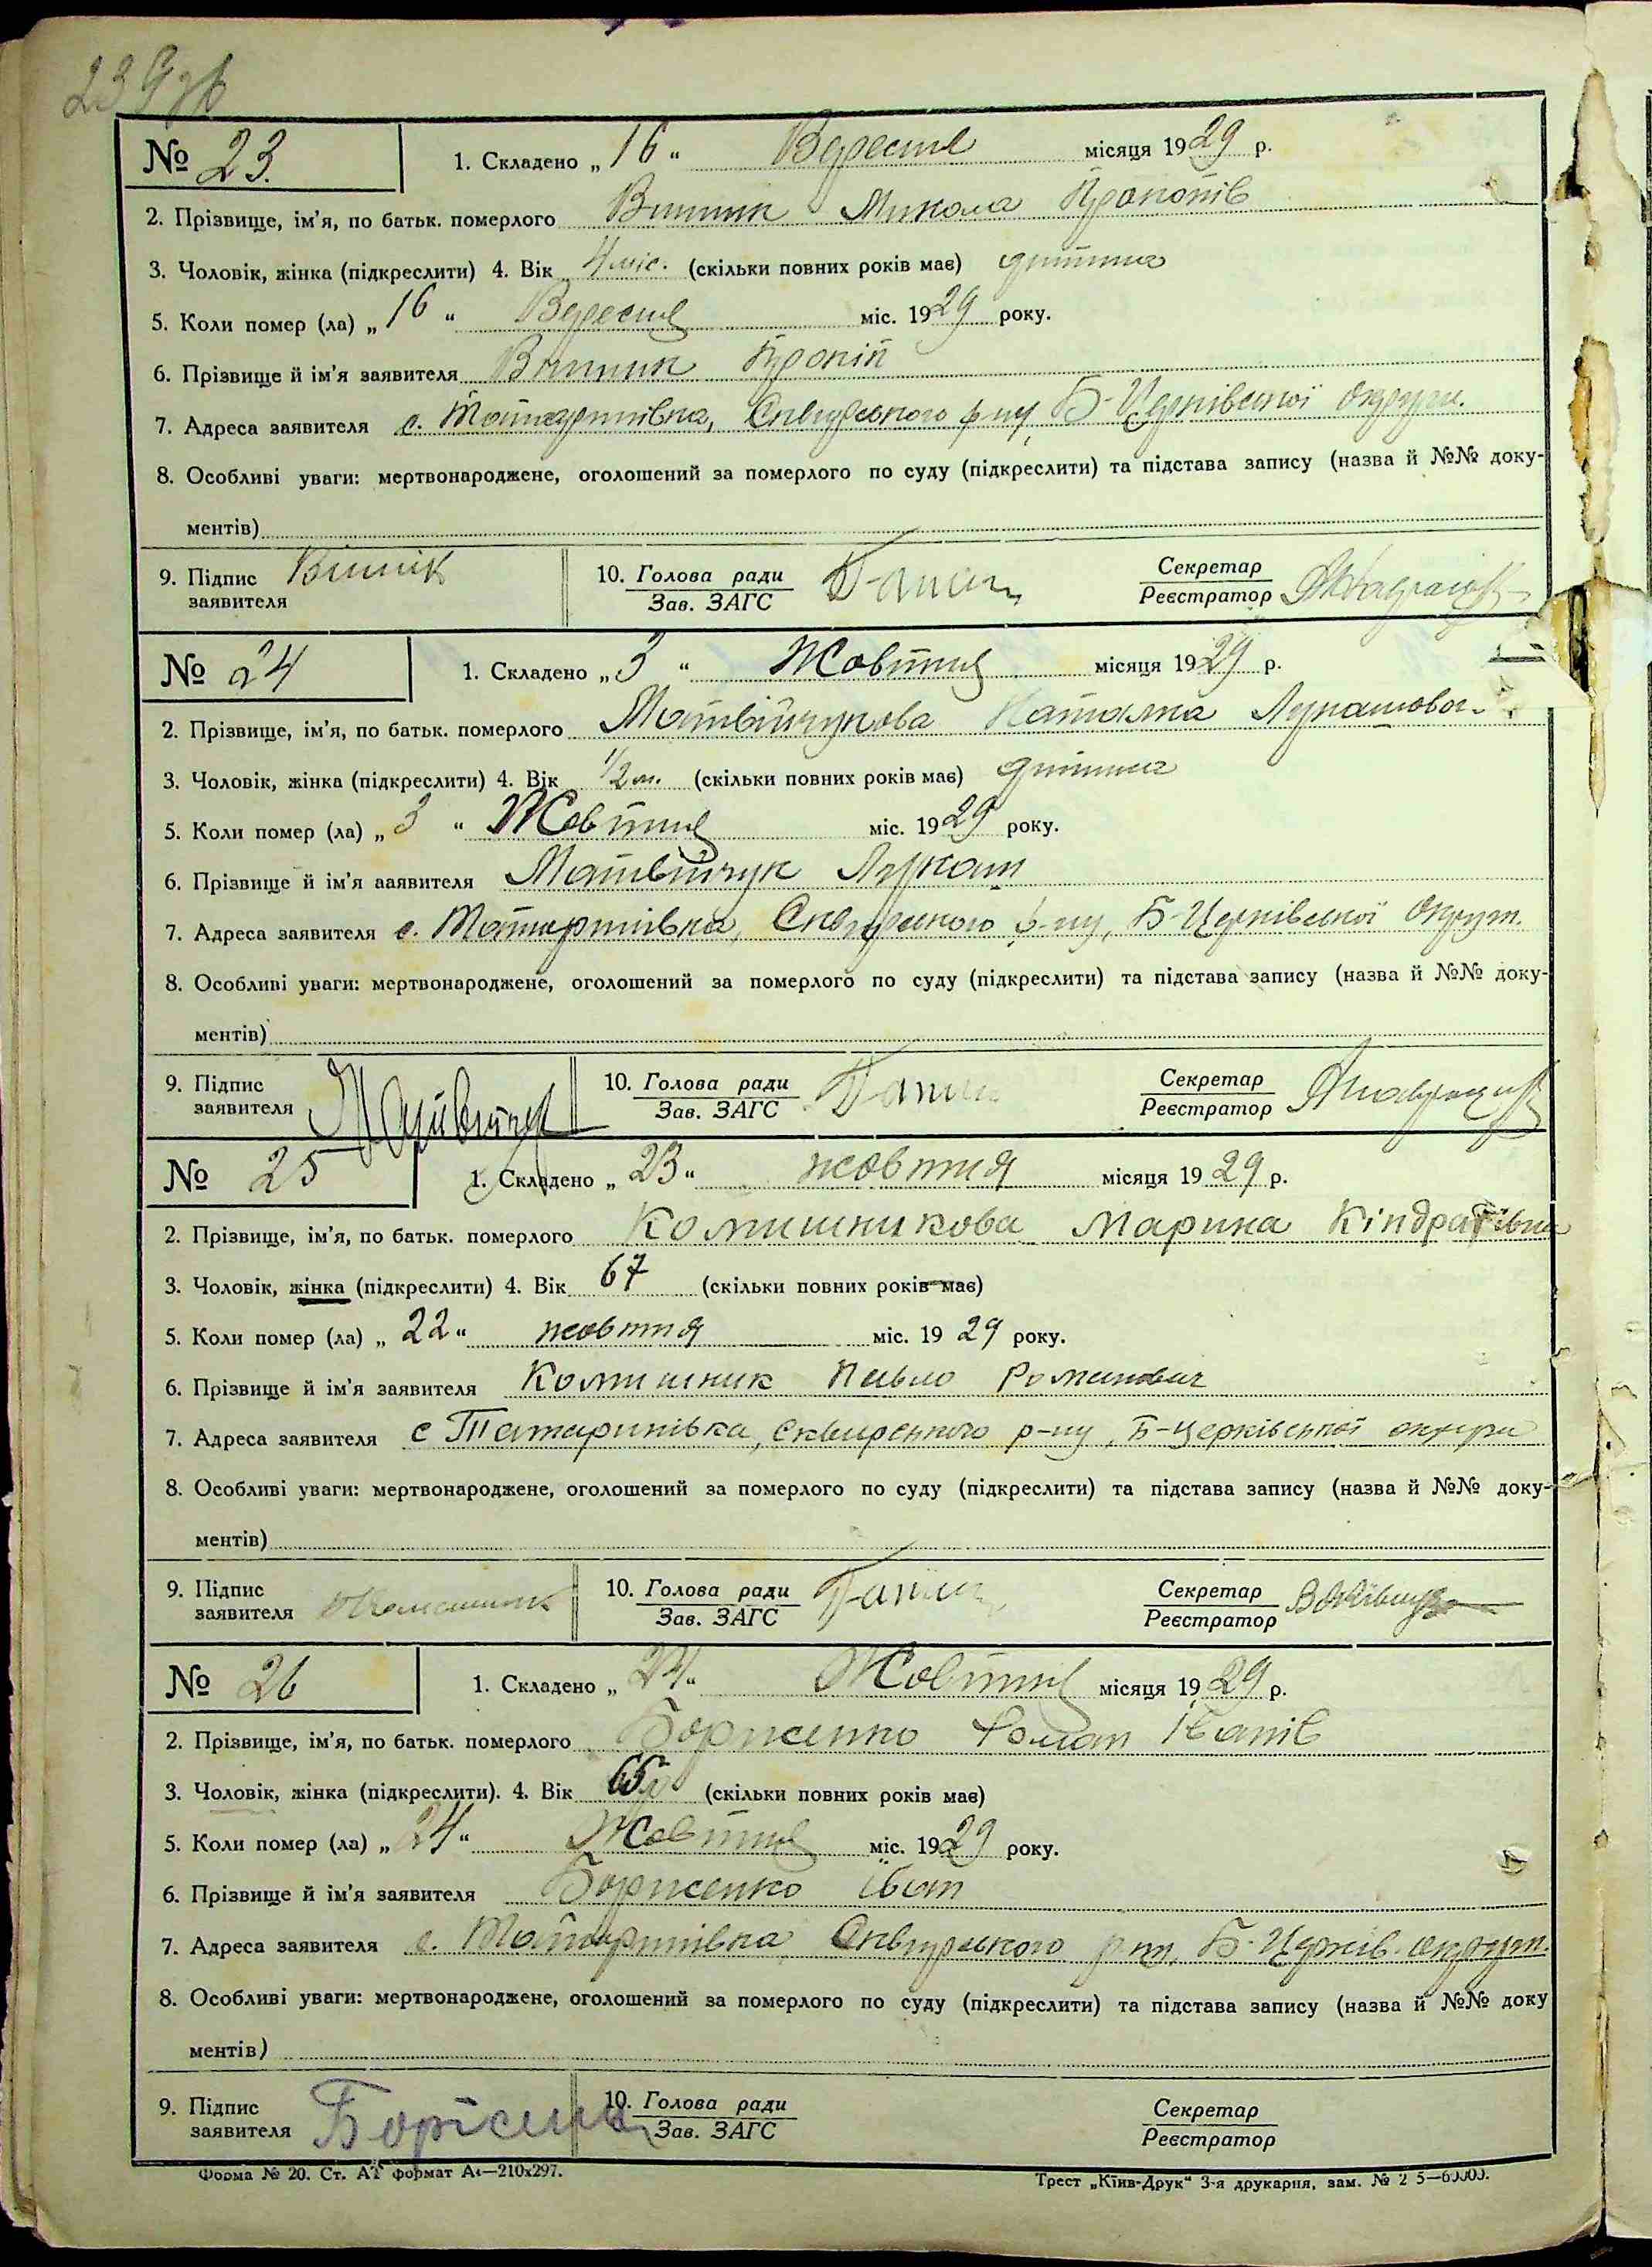 239 зв
№ 23. 1. Складено „16“ Вересня місяця 1929 р.
2. Прізвище, ім’я, по батьк. померлого Винник Микола Прокопів
3. Чоловік, жінка (підкреслити) 4. Вік 4 міс. (скільки повних років має) дитина
5. Коли помер (ла) „16“ Вересня міс. 1929 року.
6. Прізвище й ім’я заявителя Винник Прокіп
7. Адреса заявителя с. Татаринівка, Сквирського р-ну, Б-Церківської округи.
8. Особливі уваги: мертвонароджене, оголошений за померлого по суду (підкреслити) та підстава запису (назва й №№ доку-
ментів)
9. Підпис заявителя Віннік 10. Голова ради Зав. ЗАГС Секретар Реєстратор
№ 24 1. Складено „3“ Жовтня місяця 1929 р.
2. Прізвище, ім’я, по батьк. померлого Матвійчукова Наталка Лукашова
3. Чоловік, жінка (підкреслити) 4. Вік 1/2 м. (скільки повних років має) дитина
5. Коли помер (ла) „3“ Жовтня міс. 1929 року.
6. Прізвище й ім’я заявителя Матвійчук Лукаш
7. Адреса заявителя с. Татаринівка, Сквирського р-ну, Б-Церківської округи.
8. Особливі уваги: мертвонароджене, оголошений за померлого по суду (підкреслити) та підстава запису (назва й №№ доку-
ментів)
9. Підпис заявителя 10. Голова ради Зав. ЗАГС Секретар Реєстратор
№ 25 1. Складено „23“ жовтня місяця 1929 р.
2. Прізвище, ім’я, по батьк. померлого Комишникова Марина Кіндратівна
3. Чоловік, жінка (підкреслити) 4. Вік 67 (скільки повних років має)
5. Коли помер (ла) „22“ жовтня міс. 1929 року.
6. Прізвище й ім’я заявителя Комишник Павло Романович
7. Адреса заявителя с Татаринівка, Сквирського р-ну, Б-Церківської округи
8. Особливі уваги: мертвонароджене, оголошений за померлого по суду (підкреслити) та підстава запису (назва й №№ доку-
ментів)
9. Підпис заявителя 10. Голова ради Зав. ЗАГС Секретар Реєстратор
№ 26 1. Складено „24“ Жовтня місяця 1929 р.
2. Прізвище, ім’я, по батьк. померлого Борисенко Роман Іванів
3. Чоловік, жінка (підкреслити). 4. Вік 65 (скільки повних років має)
5. Коли помер (ла) „24“ Жовтня міс. 1929 року.
6. Прізвище й ім’я заявителя Борисенко Іван
7. Адреса заявителя с. Татаринівка Сквирського р-ну, Б-Церків. округи.
8. Особливі уваги: мертвонароджене, оголошений за померлого по суду (підкреслити) та підстава запису (назва й №№ доку
ментів)
9. Підпис заявителя 10. Голова ради Зав. ЗАГС Секретар Реєстратор
Форма № 20. Ст. АТ формат А4—210х297. Трест „Київ-Друк“ 3-я друкарня, зам. №